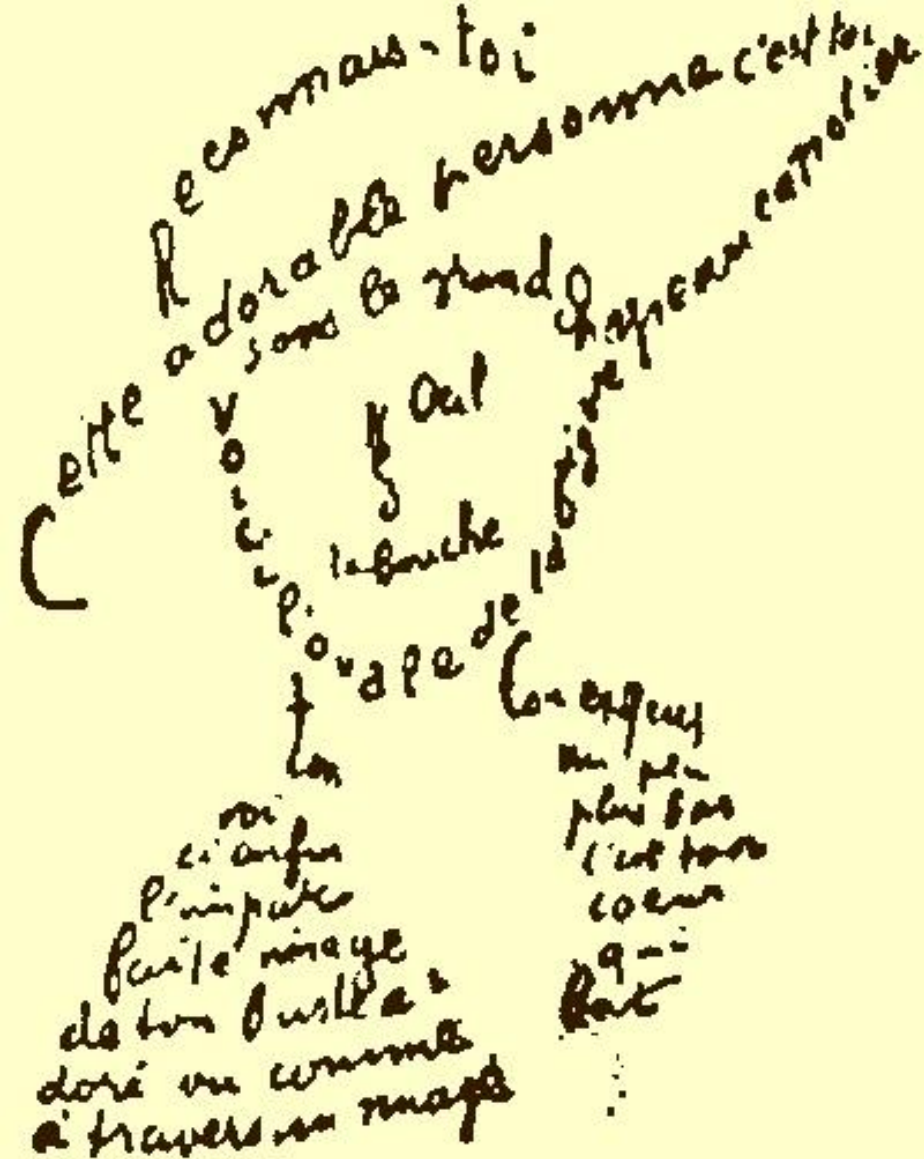 Reconnais-toi
Cette adorable personne c'est toi
sous le grand chapeau canotier
Œil
Nez
la bouche
Voici l'ovale de ta figure
ton
cou exquis
voi
ci enfin
l'imparfaite image
de ton buste a
doré vu comme
à travers un nuage
un peu
plus bas
c'est ton
cœur
qui
bat